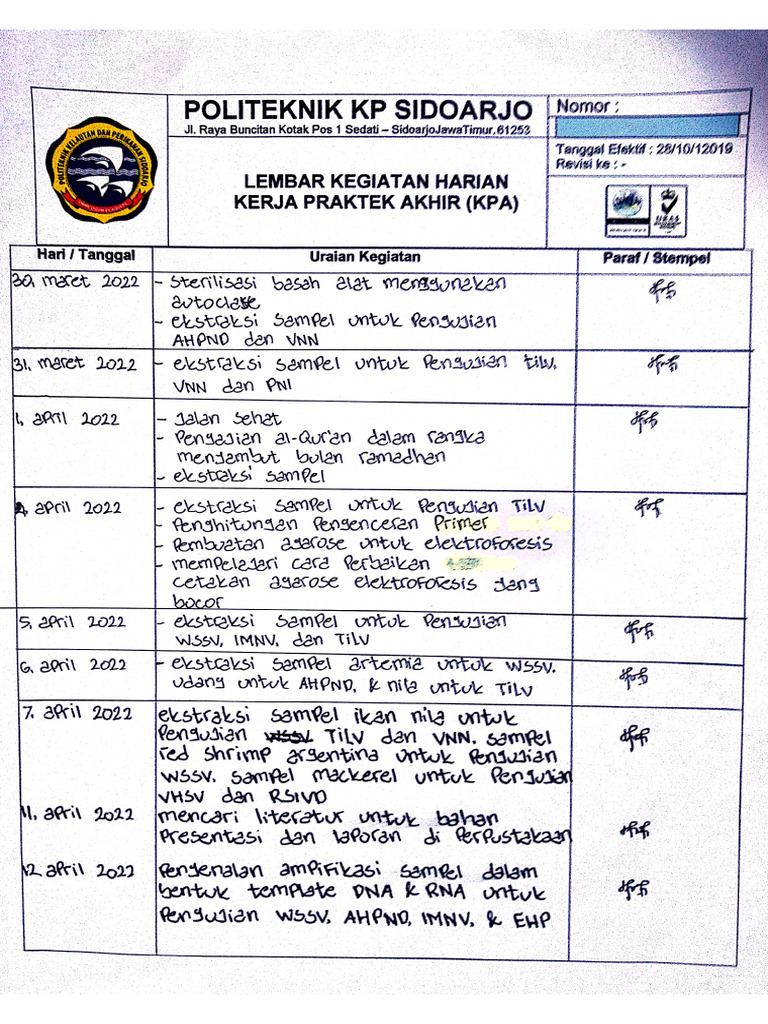 POLITEKNIK KP SIDOARJO
Jl. Raya Buncitan Kotak Pos 1 Sedati – SidoarjoJawaTimur.61253
LEMBAR KEGIATAN HARIAN
KERJA PRAKTEK AKHIR (KPA)
Nomor :
Tanggal Efektif : 28/10/12019
Revisi ke : -
POLITEKNIK KELAUTAN DAN PERIKANAN SIDOARJO
UKAS
Hari / Tanggal Uraian Kegiatan Paraf / Stempel
30, maret 2022 - Sterilisasi basah alat menggunakan
autoclase
- ekstraksi sampel untuk pengujian
AHPND dan VNN
31, maret 2022 - ekstraksi sampel untuk pengujian tilv,
VNN dan PNI
1, april 2022 - Jalan sehat
- Pengajian al-Qur'an dalam rangka
menyambut bulan ramadhan
- ekstraksi sampel
4, april 2022 - ekstraksi sampel untuk pengujian TILV
- Penghitungan Pengenceran Primer
- Pembuatan agarose untuk elektroforesis
- mempelajari cara Perbaikan
cetakan agarose elektroforesis yang
bocor
5, april 2022 - ekstraksi sampel untuk pengujian
WSSV, IMNV, dan TILV
6, april 2022 - ekstraksi sampel artemia untuk WSSV,
udang untuk AHPND, & nila untuk TILV
7, april 2022 ekstraksi sampel ikan nila untuk
Pengujian WSSV TILV dan VNN, sampel
red shrimp argentina untuk pengujian
WSSV, sampel mackerel untuk pengujian
VHSV dan RSIVD
11, april 2022 mencari literatur untuk bahan
Presentasi dan laporan di Perpustakaan
12, april 2022 Pengenalan ampifikasi sampel dalam
bentuk template DNA & RNA untuk
Pengujian WSSV, AHPND, IMNV, & EHP